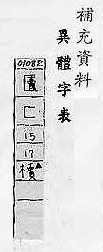 補充資料
異體字表
01082
匵
匚
15
17
櫝